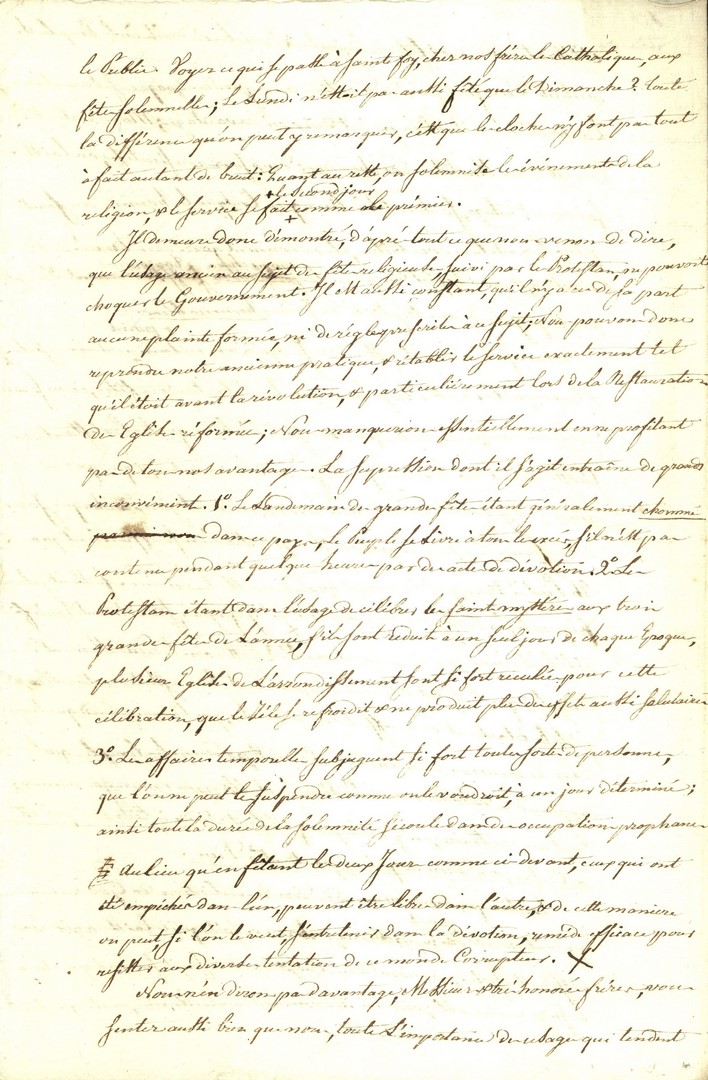 le Public. Voyez ce qui se passe à Sainte foy, chez nos fréres les Catholiques, aux
fêtes solennelles; le Lundi n'est-il pas aussi fêté que le Dimanche? toute
la différence qu'on peut y remarquer, c'est que les cloches n'y font pas tout
à fait autant de bruit: Quant au reste on solemnise les événements de la
+ le second jour
religion, & le service se fait + comme le prémier.
Il demeure donc démontré, d'aprés tout ce que nous venons de dire,
que l'usage ancien au sujet des fêtes religieuses, suivi par les Protestans, ne pouvoit
choquer le Gouvernement. Il est aussi constant, qu'il n'y a eu de sa part
aucune plainte formée, ni de régles prescrites à ce sujet; Nous pouvons donc
reprendre notre ancienne pratique, & rétablir le service exactement tel
qu'il étoit avant la révolution, & particulièrement lors de la Restauration
des Eglises réformées; Nous manquerions essentiellement en ne profitant
pas de tous nos avantages. La supression dont il s'agit entraîne de grands
inconvéniens. 1º. Le Landemain des grandes fêtes étant généralement chommé
dans ce pays, le Peuple se livre à tous les excés, s'il n'est pas
contenu pendant quelques heures par des actes de dévotion. 2º. Les
Protestans étant dans l'usage de célébrer les saints mystéres aux trois
grandes fêtes de L'année, s'ils sont réduits à un seul jour de chaque Epoque,
plusieurs Eglises de L'arrondissement sont si fort reculées pour cette
célébration, que le Zéle se refroidit & ne produit plus des effets aussi salutaires
3º. Les affaires temporelles subjuguent si fort toutes sortes de personnes,
que l'on ne peut les suspendre comme on le voudroit, à un jour déterminé;
ainsi toute la durée de la solemnité s'écoule dans des occupations prophanes
au lieu qu'en fêtant les deux Jours comme ci-devant, ceux qui ont
été empêchés dans l'un, peuvent être libres dans l'autre, & de cette maniere
on peut, si l'on le veut, s'entretenir dans la dévotion, reméde efficace pour
resister aux diverses tentations de ce monde Corrupteur. X
Nous n'en dirons pas davantage, Messieurs & trés honorés fréres, vous
sentez aussi bien que nous, toute L'importance des usages qui tendent